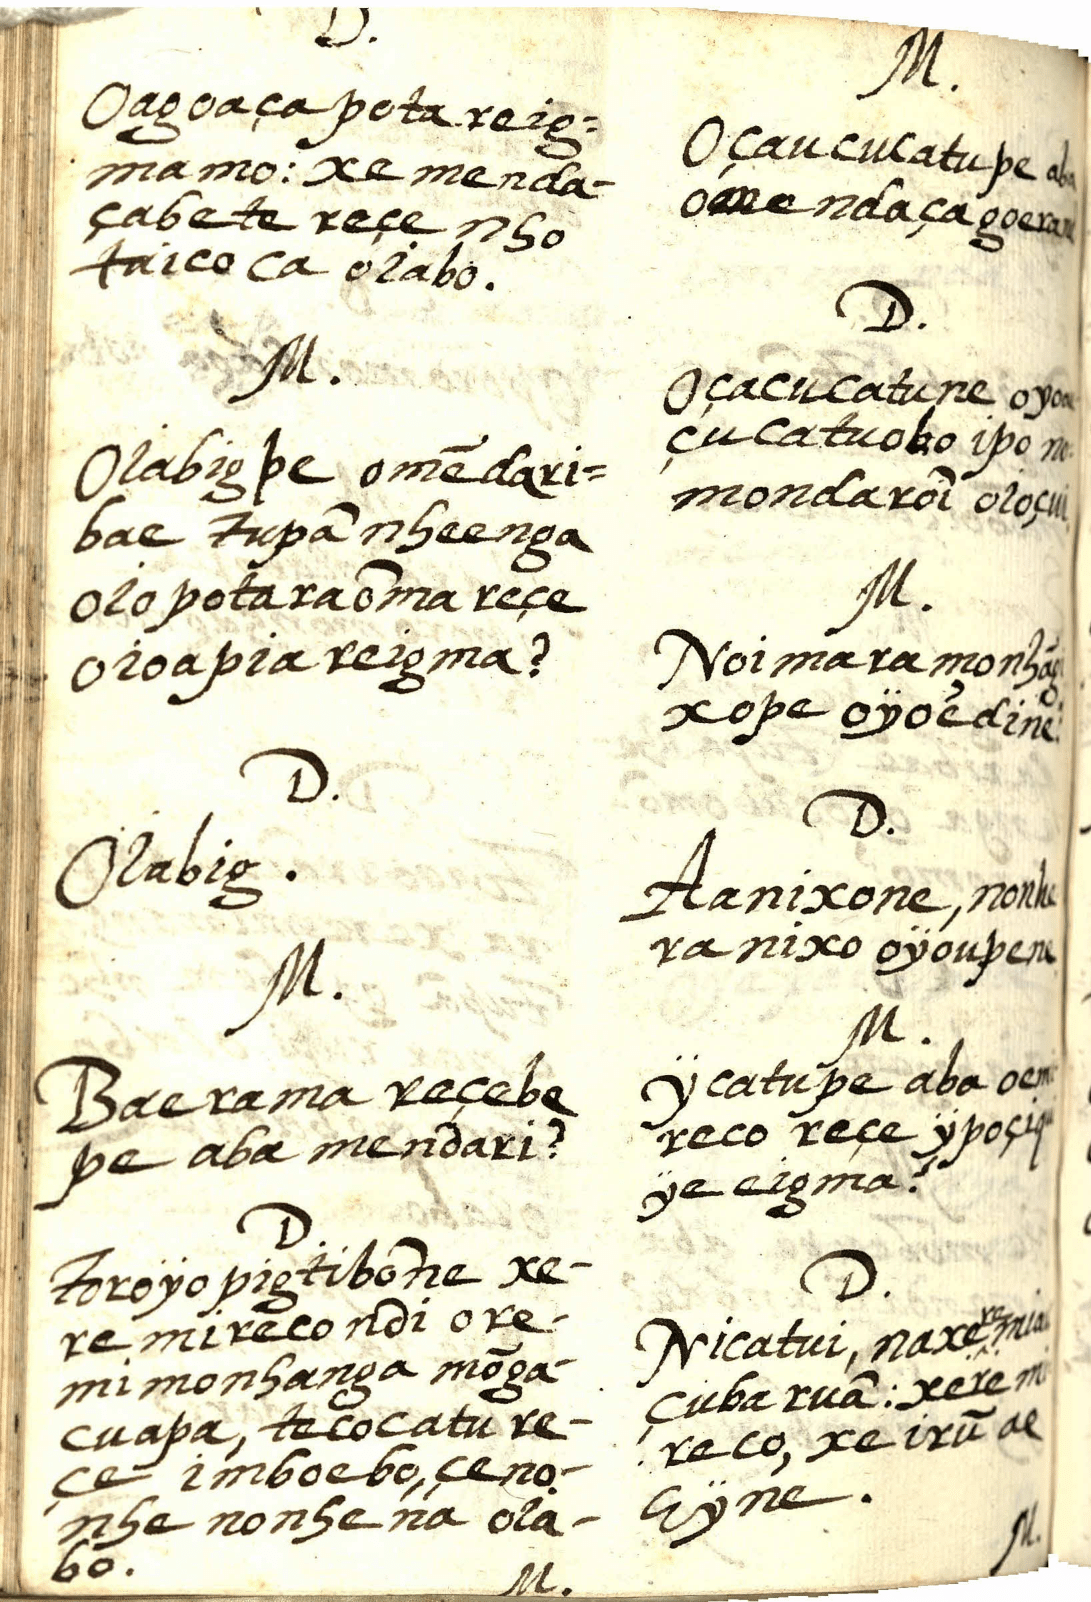 D.
Oagoaça pota reig=
mamo: xe menda-
çabete reçe nho
taico ca oiabo.
M.
Oiabig pe omẽdari=
bae Tupã nheenga
oio potaraõma reçe
oioapiareigma?
D.
Oiabig.
M.
Baerama reçebe
pe aba mendari?
D
Toroÿo pigtibõne xe-
remireco ndi ore-
mimonhanga mõga-
cuapa, tecocatu re-
çe imboebo, çeno-
nhe nonhena oia-
bo.
M.
M.
Oçauçucatupe aba
omendaçagoera
D.
Oçacucatune oyoa
çucatuobo ipo no-
mondaroĩ oioçui
M.
Noimaramonhãg
xope oÿoẽdine?
D.
Aanixone, nonhe
ranixo oÿoupene
M.
ÿcatupe aba oemi
reco reçe ÿpoçiqui
ÿe eigma?
D.
Nicatui, naxeremiau
çubaruã: xeremi
reco, xe irũ ae
çÿne.
M.